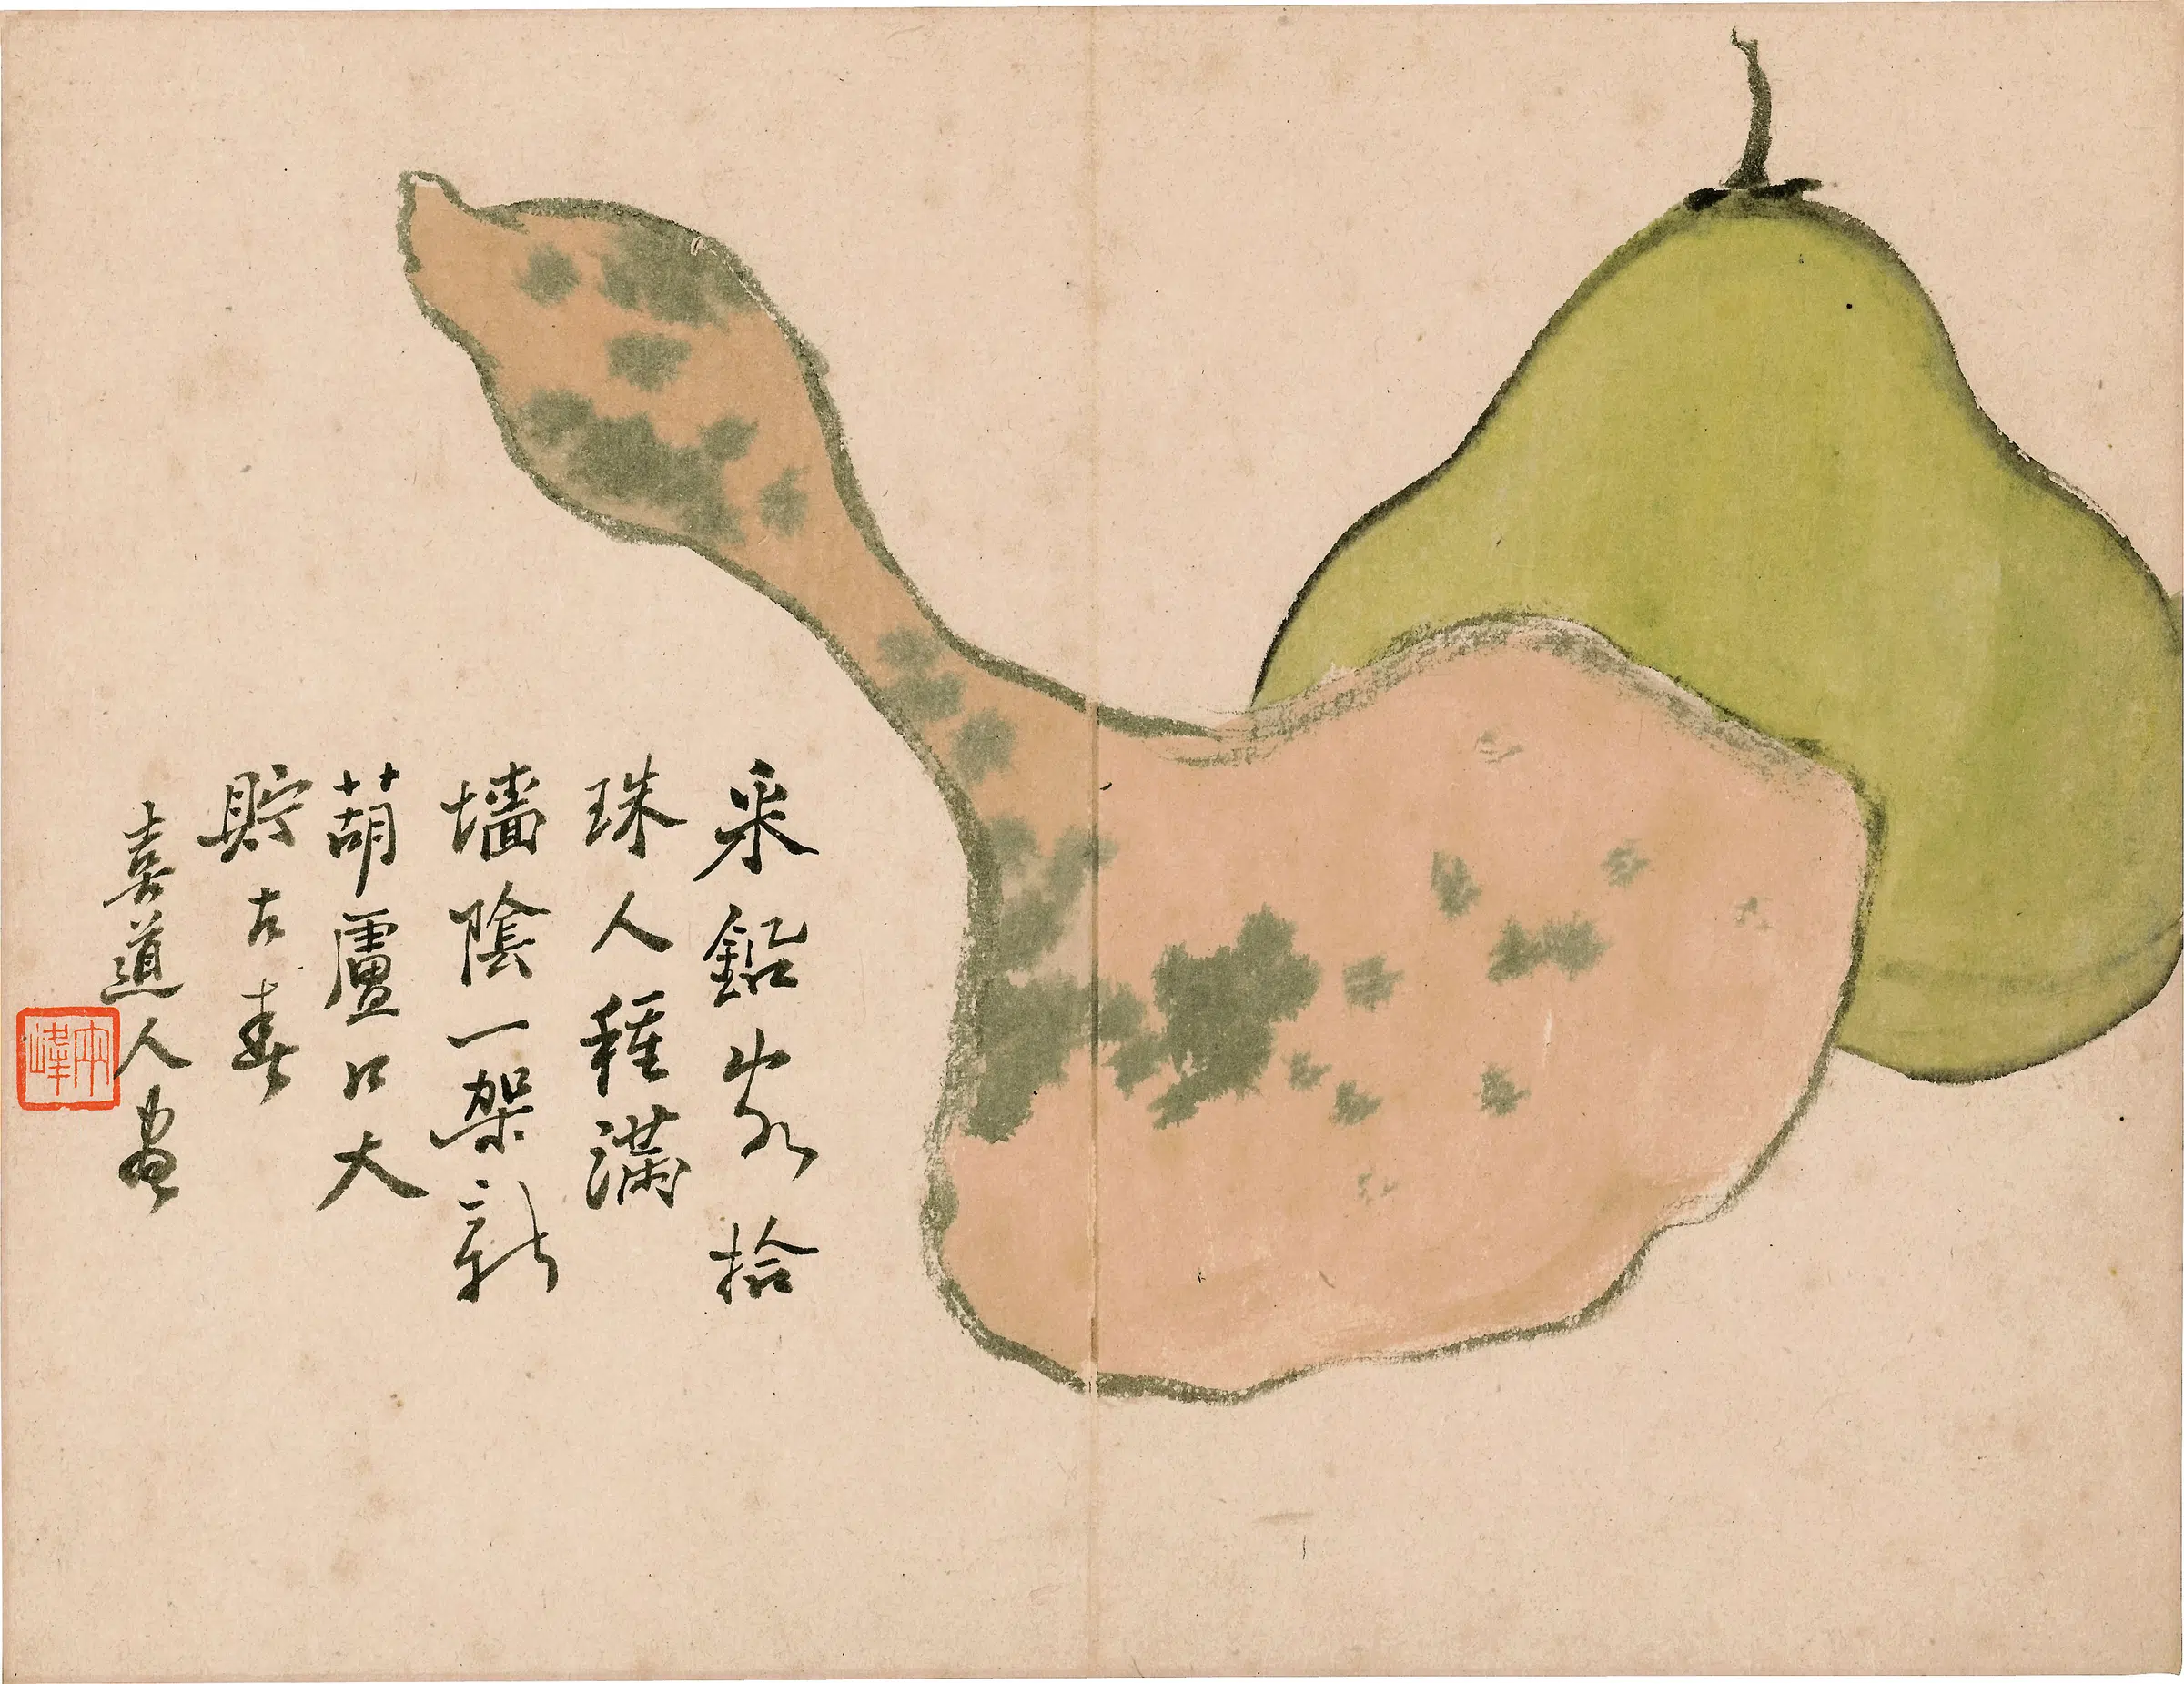 采鉛拾
珠人種滿
墻陰一架新
葫盧口大
貯古春
喜道人畫
兩峰